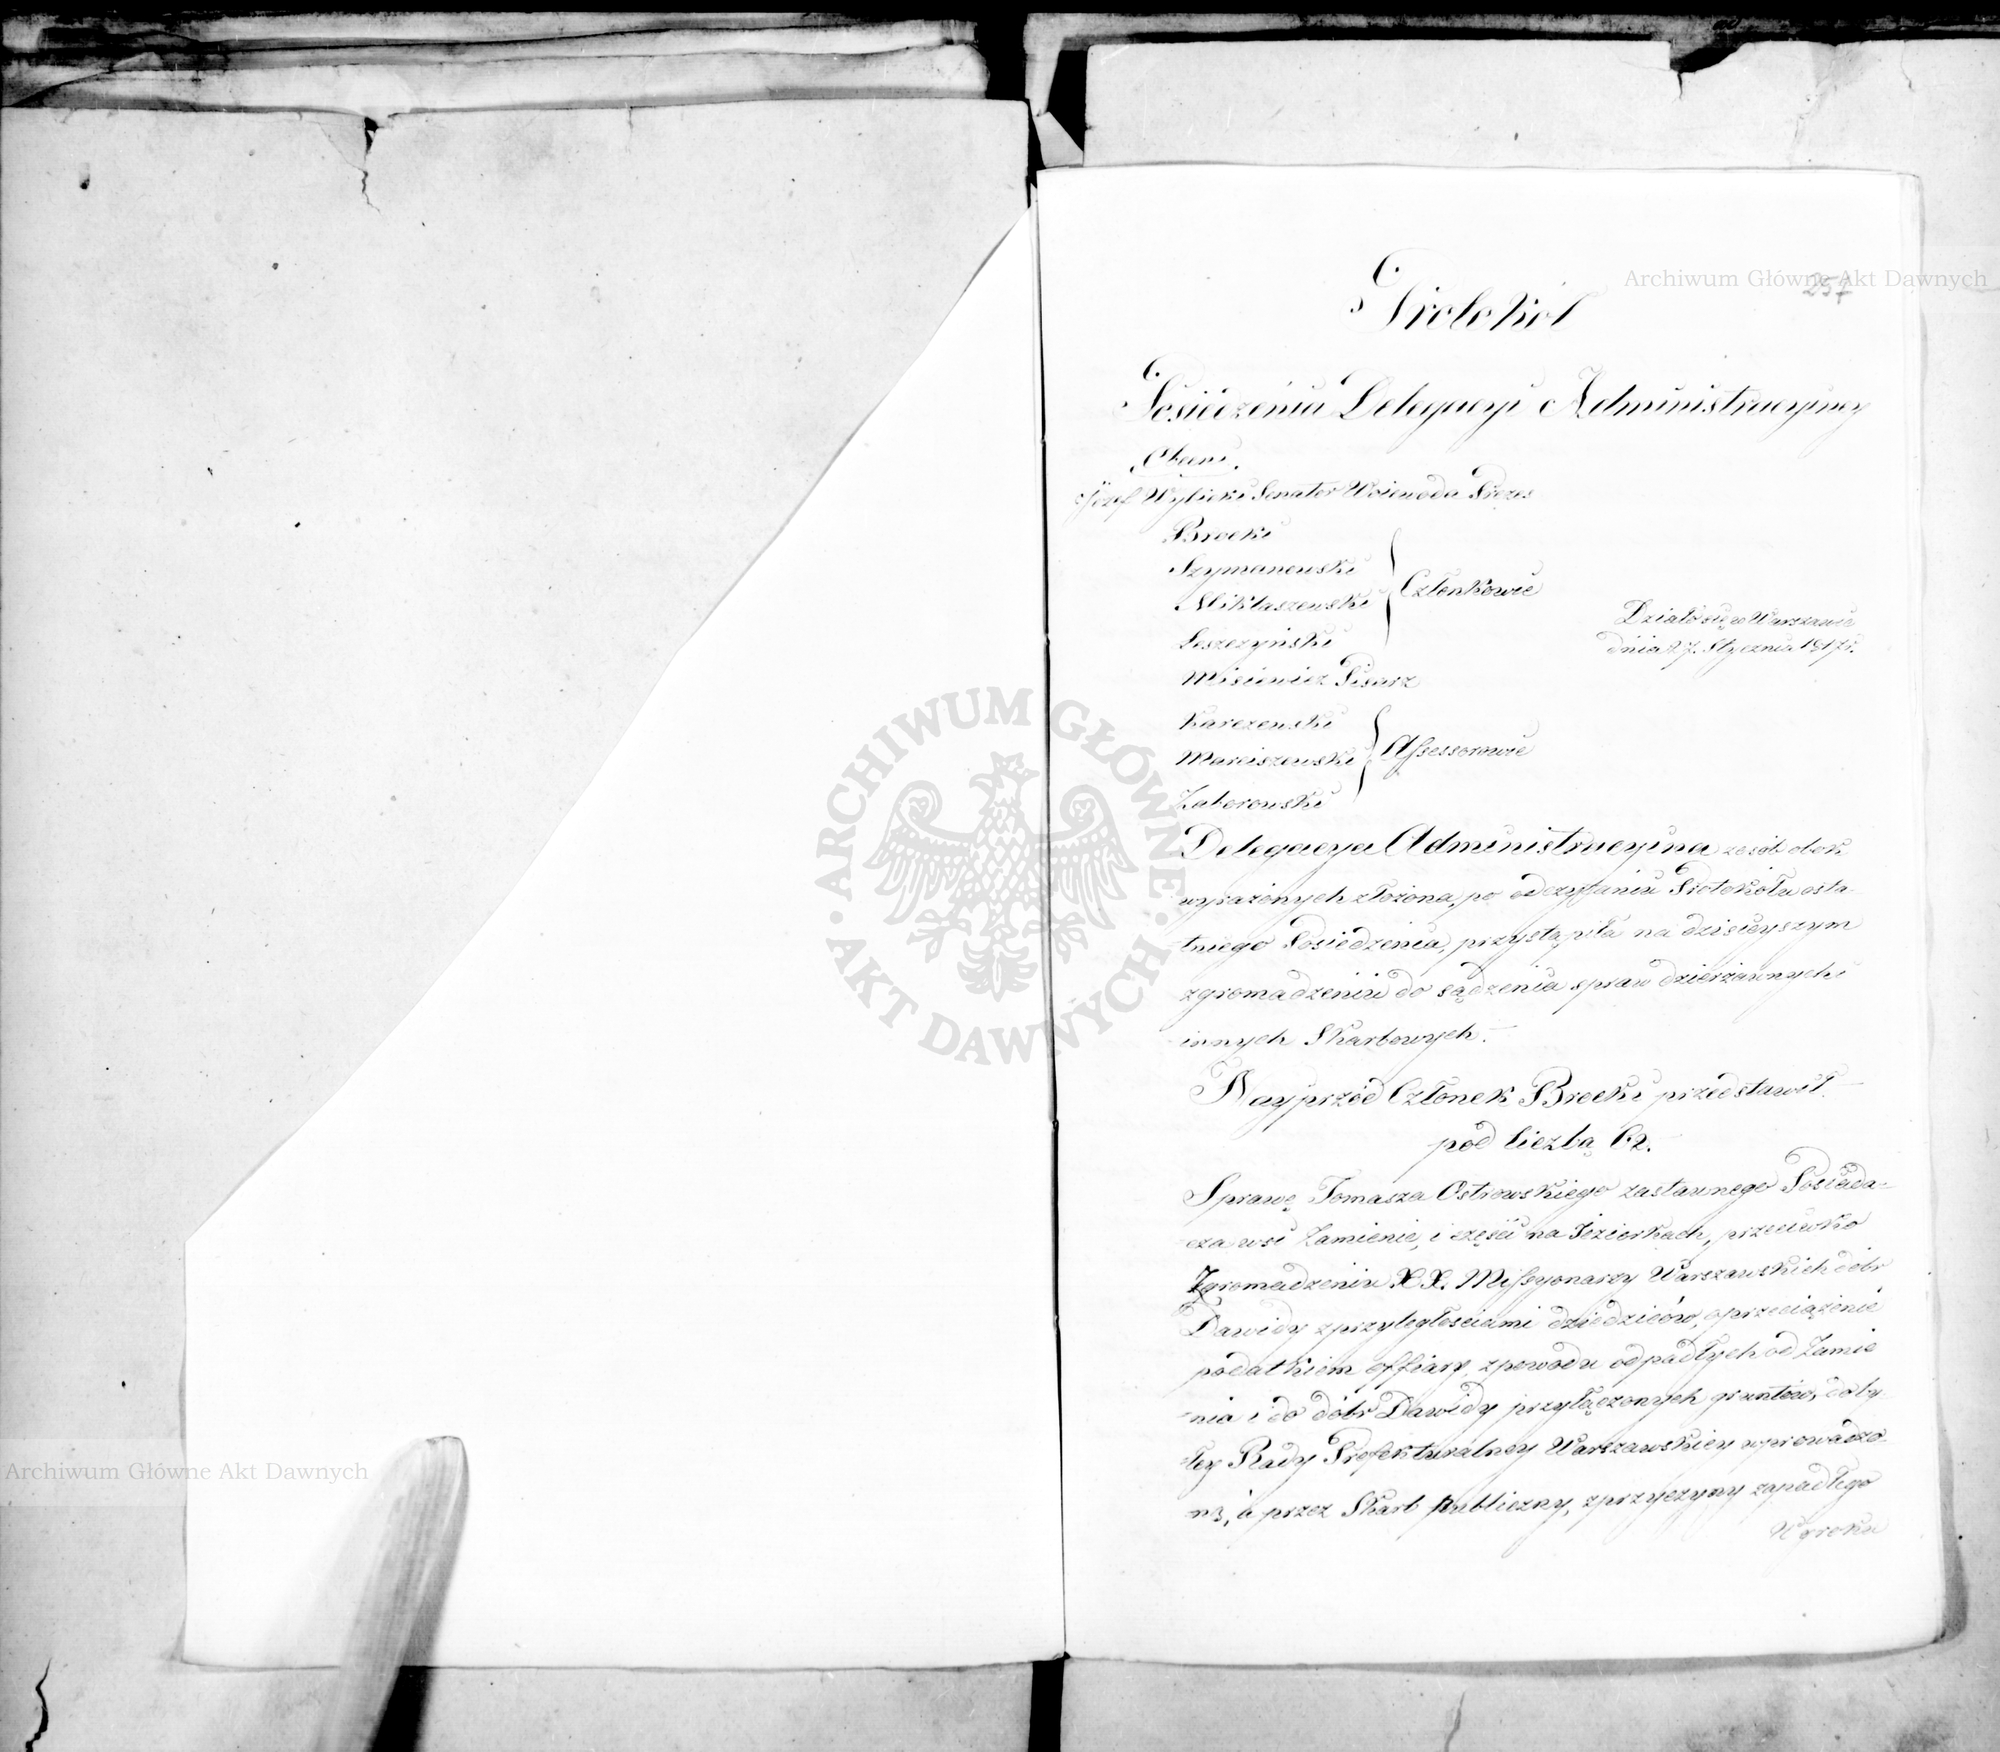 Archiwum Główne Akt Dawnych
257
Protokół
Posiedzenia Delegacyi Administracyiney
Obecni.
Józef Wybicki Senator Woiewoda Prezes
Brocki
Szymanowski
Miklaszewski
Członkowie
Leszczyński
Działo się w Warszawie
dnia 27. Stycznia 1817 r.
Misiewicz Pisarz
Karczewski
Marciszewski
Assessorowie
Zaborowski
Delegacya Administracyina z osób obok
wyrażonych złożona, po odczytaniu Protokołu osta-
tniego Posiedzenia, przystąpiła na dzisieyszym
zgromadzeniu do sądzenia spraw dzierżawnych i
innych Skarbowych.
Nayprzód Członek Brocki przedstawił
pod liczbą 62.
Sprawę Tomasza Ostrowskiego zastawnego Posiada-
cza wsi Zamienie, i części na Jeziorkach, przeciwko
Zgromadzeniu XX. Missyonarzy Warszawskich dóbr
Dawidy z przyległościami dziedziców, o przeciążenie
podatkiem offiary, z powodu odpadłych od Zamie
nia i do dóbr Dawidy przyłączonych gruntów, do by
łey Rady Prefekturalney Warszawskiey wprowadzo-
ną, a przez Skarb Publiczny, z przyczyny zapadłego
Wyroku
ARCHIWUM GŁÓWNE AKT DAWNYCH
Archiwum Główne Akt Dawnych